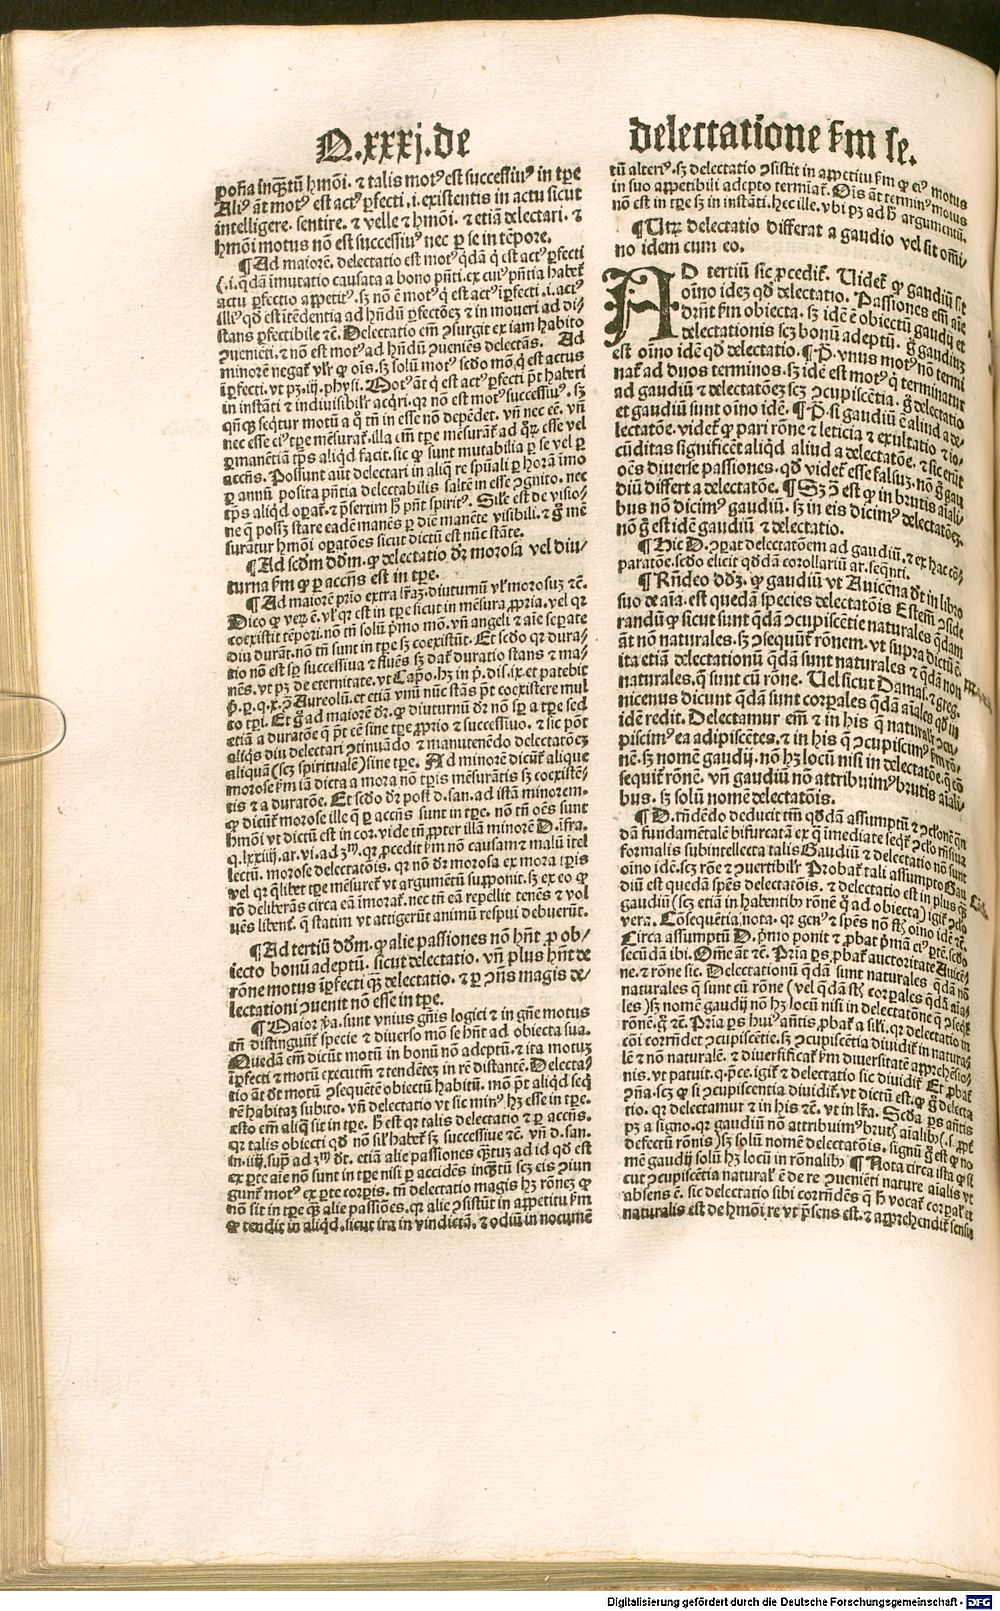 Q.xxxj.de
poñа inq̃ꝫtũ hmõi. ⁊ talis motꝰ est successiuꝰ in tꝑe
Aliꝰ ãt motꝰ est actꝰ ꝑfecti .i. existentis in actu sicut
intelligere. sentire. ⁊ velle ⁊ hmõi. ⁊ etiã delectari. ⁊
hmõi motus nõ est successiuꝰ nec ꝑ se in tẽpore.
¶ Ad maiorẽ. delectatio est motꝰ q̃dã q̇ est actꝰ ꝑfecti
(.i. q̃dã ĩmutatio causata a bono pñti. ex cuiꝰ pñtia habet̃
actu ꝑfectio appetitꝰ. sꝫ nõ ẽ motꝰ q̇ est actꝰ ĩꝑfecti .i. actꝰ
illiꝰ qð est ĩtẽdentia ad hñdũ ꝑfectõeꝫ ⁊ in moueri ad di⸗
stans ꝑfectibile ⁊c̃. Delectatio em̃ ꝯsurgit ex iam habito
ꝯueniẽti. ⁊ nõ est motꝰ ad hñdũ ꝯueniẽs delectãs. Ad
minorẽ negat̃ vl̃r ꝙ ois. sꝫ solũ motꝰ scðo mõ q̇ est actus
ĩꝑfecti. vt pꝫ .iij. physi. Motꝰ ãt q̇ est actꝰ ꝑfecti p̃t haberi
in instãti ⁊ indiuisibilr̃ acq̃ri. qꝛ nõ est motꝰ successiuꝰ. sꝫ
qñqꝫ seq̃tur motũ a quo tñ in esse nõ depẽdet. vñ nec eẽ. vñ
nec esse eiꝰ tꝑe mẽsurat̃. illa em̃ tꝑe mẽsurãt̃ ad q̃ꝝ esse vel
ꝑmanẽtiam tꝑs aliqd facit. sic ꝙ sunt mutabilia ꝑ se vel ꝑ
accñs. Possunt aũt delectari in aliq̃ re spũali ꝑ horã ĩmo
ꝑ annũ posita pñtia delectabilis saltẽ in esse ꝯgnito. nec
tꝑs aliqd oꝑat̃. ⁊ p̃sertim ẜm pñt spiritꝰ. Silẽ est de visio⸗
ne q̃ possꝫ stare eadẽ manẽs ꝑ diẽ manẽte visibili. ⁊ ġ mẽ
suratur hmõi oꝑatões sicut dictũ est nũc stãte.
¶ Ad scðm ddm̃. ꝙ delectatio dr̃ morosa vel diu⸗
turna ẜm ꝙ ꝑ accñs est in tꝑe.
¶ Ad maiorẽ prio extra lr̃aꝫ. diuturnũ vl̃ morosuꝫ ⁊c̃.
Dico ꝙ veꝝ ẽ. vl̃ qꝛ est in tꝑe sicut in mẽsura ꝓpria. vel qꝛ
coexistit tẽpori. nõ tñ solũ p̃mo mõ. vñ angeli ⁊ aĩe seꝑate
diu durãt. nõ tñ sunt in tꝑe sꝫ coexistũt. Et scðo qꝛ dura⸗
tio nõ est sꝑ successiua ⁊ fluẽs sꝫ dat̃ duratio stans ⁊ ma⸗
nẽs. vt pꝫ de eternitate. vt Capṙo. hꝫ in p̃. dis. ix. et patebit
p̃. p. q. x. ꝯ̃ Aureolũ. et etiam vnũ nũc stãs p̃t coexistere mul
to tꝑi. Et ġ ad maiorẽ dr̃. ꝙ diuturnũ dr̃ nõ sꝑ a tꝑe sed
etiã a duratõe q̃ p̃t eẽ sine tꝑe ꝓprio ⁊ successiuo. ⁊ sic põt
aliqs diu delectari ꝯtinuãdo ⁊ manutenẽdo delectatõeꝫ
aliquã (scꝫ spiritualẽ) sine tꝑe. Ad minorẽ dicũt̃ alique
morose ẜm iã dicta a mora nõ tꝑis mẽsurãtis sꝫ coexistẽ⸗
tis ⁊ a duratõe. Et scðo dr̃ post d. san. ad istã minorem.
ꝙ dicũt̃ morose ille q̃ ꝑ accñs sunt in tꝑe. nõ tñ oẽs sunt
hmõi vt dictũ est in cor. vide tñ ꝓpter illã minorẽ D. ĩfra.
q. lxxiiij. ar. vi. ad 3ᵐ. qꝛ ꝓcedit ẜm nõ causam ⁊ malũ ĩtel
lectũ. morose delectatõis. qꝛ nõ dr̃ morosa ex mora tꝑis
vel qꝛ q̃libet tꝑe mẽsuret̃ vt argumẽtũ supponit. sꝫ ex eo ꝙ
rõ deliberãs circa eã ĩmorat̃. nec tñ eã repellit tenẽs ⁊ vol
uẽs libent̃. q̃ statim vt attigerũt animũ respui debuerũt.
¶ Ad tertiũ ddm̃. ꝙ alie passiones nõ hñt ꝓ ob⸗
iecto bonũ adeptũ. sicut delectatio. vñ plus hñt de
rõne motus ĩꝑfecti q̃ꝫ delectatio. ⁊ ꝑ ꝯñs magis de⸗
lectationi ꝯuenit nõ esse in tꝑe.
¶ Maior p̃a. sunt vnius gñis logici ⁊ in gñe motus
tñ distinguũt̃ specie ⁊ diuerso mõ se hñt ad obiecta sua.
Quedã em̃ dicũt motũ in bonũ nõ adeptũ. ⁊ ita motuꝫ
ĩꝑfecti ⁊ motũ executm̃ ⁊ tendẽteꝫ in rẽ distantẽ. Delecta⸗
tio ãt dt̃ motũ ꝯsequẽtẽ obiectũ habitũ. mõ p̃t aliqd seq̃
rẽ habitaꝫ subito. vñ delectatio vt sic minꝰ hꝫ esse in tꝑe.
esto em̃ aliq̃ sit in tꝑe. h̃ est qꝛ talis delectatio ⁊ ꝑ accñs.
qꝛ talis obiecti qð nõ sil̃ habet̃ sꝫ successiue ⁊c̃. vñ d. san.
in .iiij. sup̃ ad 3ᵐ dt̃. etiam alie passiones q̃ꝫtuꝫ ad id qð est
ex ꝑte aĩe nõ sunt in tꝑe nisi ꝑ accidẽs inq̃tũ scꝫ eis ꝯiun
gunt̃ motꝰ ex ꝑte corꝑis. tñ delectatio magis hꝫ rõneꝫ ꝙ
nõ sit in tꝑe q̃ꝫ alie passiões. qꝛ alie ꝯsistũt in appetitu ẜm
ꝙ tendit in aliqd. sicut ira in vindictã. ⁊ odiũ in nocumẽ
delectatione ẜm se.
tũ alteriꝰ. sꝫ delectatio ꝯsistit in appetitu ẜm ꝙ eiꝰ motus
in suo appetibili adepto termiãt̃. Ois ãt terminꝰ motus
nõ est in tꝑe sꝫ in instãti. hec ille. vbi pꝫ ad h̃ argumentũ.
¶ Utꝝ delectatio differat a gaudio vel sit om̃i⸗
no idem cum eo.
AD tertiũ sic ꝓcedit̃. Uidet̃ ꝙ gaudiũ sit
oĩno ideꝫ qð delectatio. Passiones em̃ aĩe
drñt ẜm obiecta. sꝫ idẽ ẽ obiectũ gaudij et
delectationis scꝫ bonũ adeptũ. ġ gaudiuꝫ
est oĩno idẽ qð delectatio. ¶ P̃. vnus motꝰ nõ termi
nat̃ ad duos terminos. sꝫ idẽ est motꝰ q̇ terminatur
ad gaudiũ ⁊ delectatõeꝫ scꝫ ꝯcupiscẽtia. ġ delectatio
et gaudiũ sunt oĩno idẽ. ¶ P̃. si gaudiũ ẽ aliud a de⸗
lectatõe. videt̃ ꝙ pari rõne ⁊ leticia ⁊ exultatio ⁊ io⸗
cũditas significẽt aliqd aliud a delectatõe. ⁊ sic erũt
oẽs diuerse passiones. qð videt̃ esse falsuꝫ. nõ ġ gau
diũ differt a delectatõe. ¶ Sꝫ ꝯ̃ est ꝙ in brutis aĩali⸗
bus nõ dicimꝰ gaudiũ. sꝫ in eis dicimꝰ delectatõeꝫ.
nõ ġ est idẽ gaudiũ ⁊ delectatio.
¶ Hic D. ꝯꝑat delectatõem ad gaudiũ. ⁊ ex hac cõ⸗
paratõe. scðo elicit qðdã corollariũ ar. seq̃nti.
¶ Rñdeo ddꝫ. ꝙ gaudiũ vt Auicẽna dt̃ in libro
suo de aĩa. est quedã species delectatõis Est em̃ ꝯside
randũ ꝙ sicut sunt q̃dã ꝯcupiscẽtie naturales q̃dam
ãt nõ naturales. sꝫ ꝯsequũt̃ rõnem. vt supra dictũ ẽ.
ita etiam delectationũ q̃dã sunt naturales ⁊ q̃dã non
naturales. q̃ sunt cũ rõne. Uel sicut Damas. ⁊ greg.
nicenus dicunt q̃dã sunt corꝑales q̃dã aĩales qð in
idẽ redit. Delectamur em̃ ⁊ in his q̃ naturalr̃ ꝯcu⸗
piscimꝰ ea adipiscẽtes. ⁊ in his q̃ ꝯcupiscimꝰ ẜm rõ⸗
nẽ. sꝫ nomẽ gaudij. nõ hꝫ locũ nisi in delectatõe. q̃ cõ
sequit̃ rõnẽ. vñ gaudiũ nõ attribuimꝰ brutis aĩali⸗
bus. sꝫ solũ nomẽ delectatõis.
¶ D. rñdẽdo deducit tm̃ qðdã assumptũ ⁊ ꝯclõnẽ qñ
dã fundamẽtalẽ bifurcatã ex q̃ ĩmediate seqt̃ ꝯclo rñsiua
formalis subintellecta talis Gaudiũ ⁊ delectatio nõ sunt
oĩno idẽ. scꝫ rõne ⁊ ꝯuertibilr̃ Probat̃ tali assumpto Gau
diũ est quedã spẽs delectatõis. ⁊ delectatio est in plus q̃ꝫ
gaudiũ (scꝫ etiã in habentibꝰ rõnẽ q̃ ad obiecta) igit̃ ꝯclo
vera. Cõsequẽtia nota. qꝛ genꝰ ⁊ spẽs nõ st̃ oĩno idẽ ⁊c̃.
Circa assumptũ D. p̃mo ponit ⁊ ꝓbat p̃mã eiꝰ ꝑtẽ. scðo
secũdã ibi. Om̃e ãt ⁊c̃. P̃ria ꝑs ꝓbat̃ auctoritate Auicẽ⸗
ne. ⁊ rõne sic. Delectationũ q̃dã sunt naturales q̃dã nõ
naturales q̃ sunt cũ rõne (vel q̃dã st̃ corꝑales q̃dã aĩa⸗
les) sꝫ nomẽ gaudij nõ hꝫ locũ nisi in delectatõne q̃ ꝯseqt̃
rõnẽ. ġ ⁊c̃. P̃ria ꝑs huiꝰ añtis ꝓbat̃ a sil̃i. qꝛ delectatio in
cõi corrñdet ꝯcupiscẽtie. sꝫ ꝯcupiscẽtia diuidit̃ in natura⸗
lẽ ⁊ nõ naturalẽ. ⁊ diuersificat̃ ẜm diuersitatẽ apprehẽsio⸗
nis. vt patuit. q. p̃ce. igit̃ ⁊ delectatio sic diuidit̃. Et ꝓbat̃
ꝯña. scꝫ ꝙ si ꝯcupiscentia diuidit̃. vt dictũ est. ꝙ ġ delecta
tio. qꝛ delectamur ⁊ in his ⁊c̃. vt in lr̃a. Scða ꝑs añtis
pꝫ a signo. qꝛ gaudiũ nõ attribuimꝰ brutꝭ aĩalibꝰ (.s. ꝓpt̃
defectũ rõnis) sꝫ solũ nomẽ delectatõis. signũ ġ est ꝙ no
mẽ gaudij solũ hꝫ locũ in rõnalibꝰ ¶ Nota circa ista ꝙ si
cut ꝯcupiscẽtia natural̃ ẽ de re ꝯueniẽti nature aĩalis vt
absens ẽ. sic delectatio sibi corrñdẽs q̃ h̃ vocat̃ corꝑal̃ et
naturalis est de hmõi re vt p̃sens est. ⁊ apprehendit̃ sensu
Digitalisierung gefördert durch die Deutsche Forschungsgemeinschaft - DFG